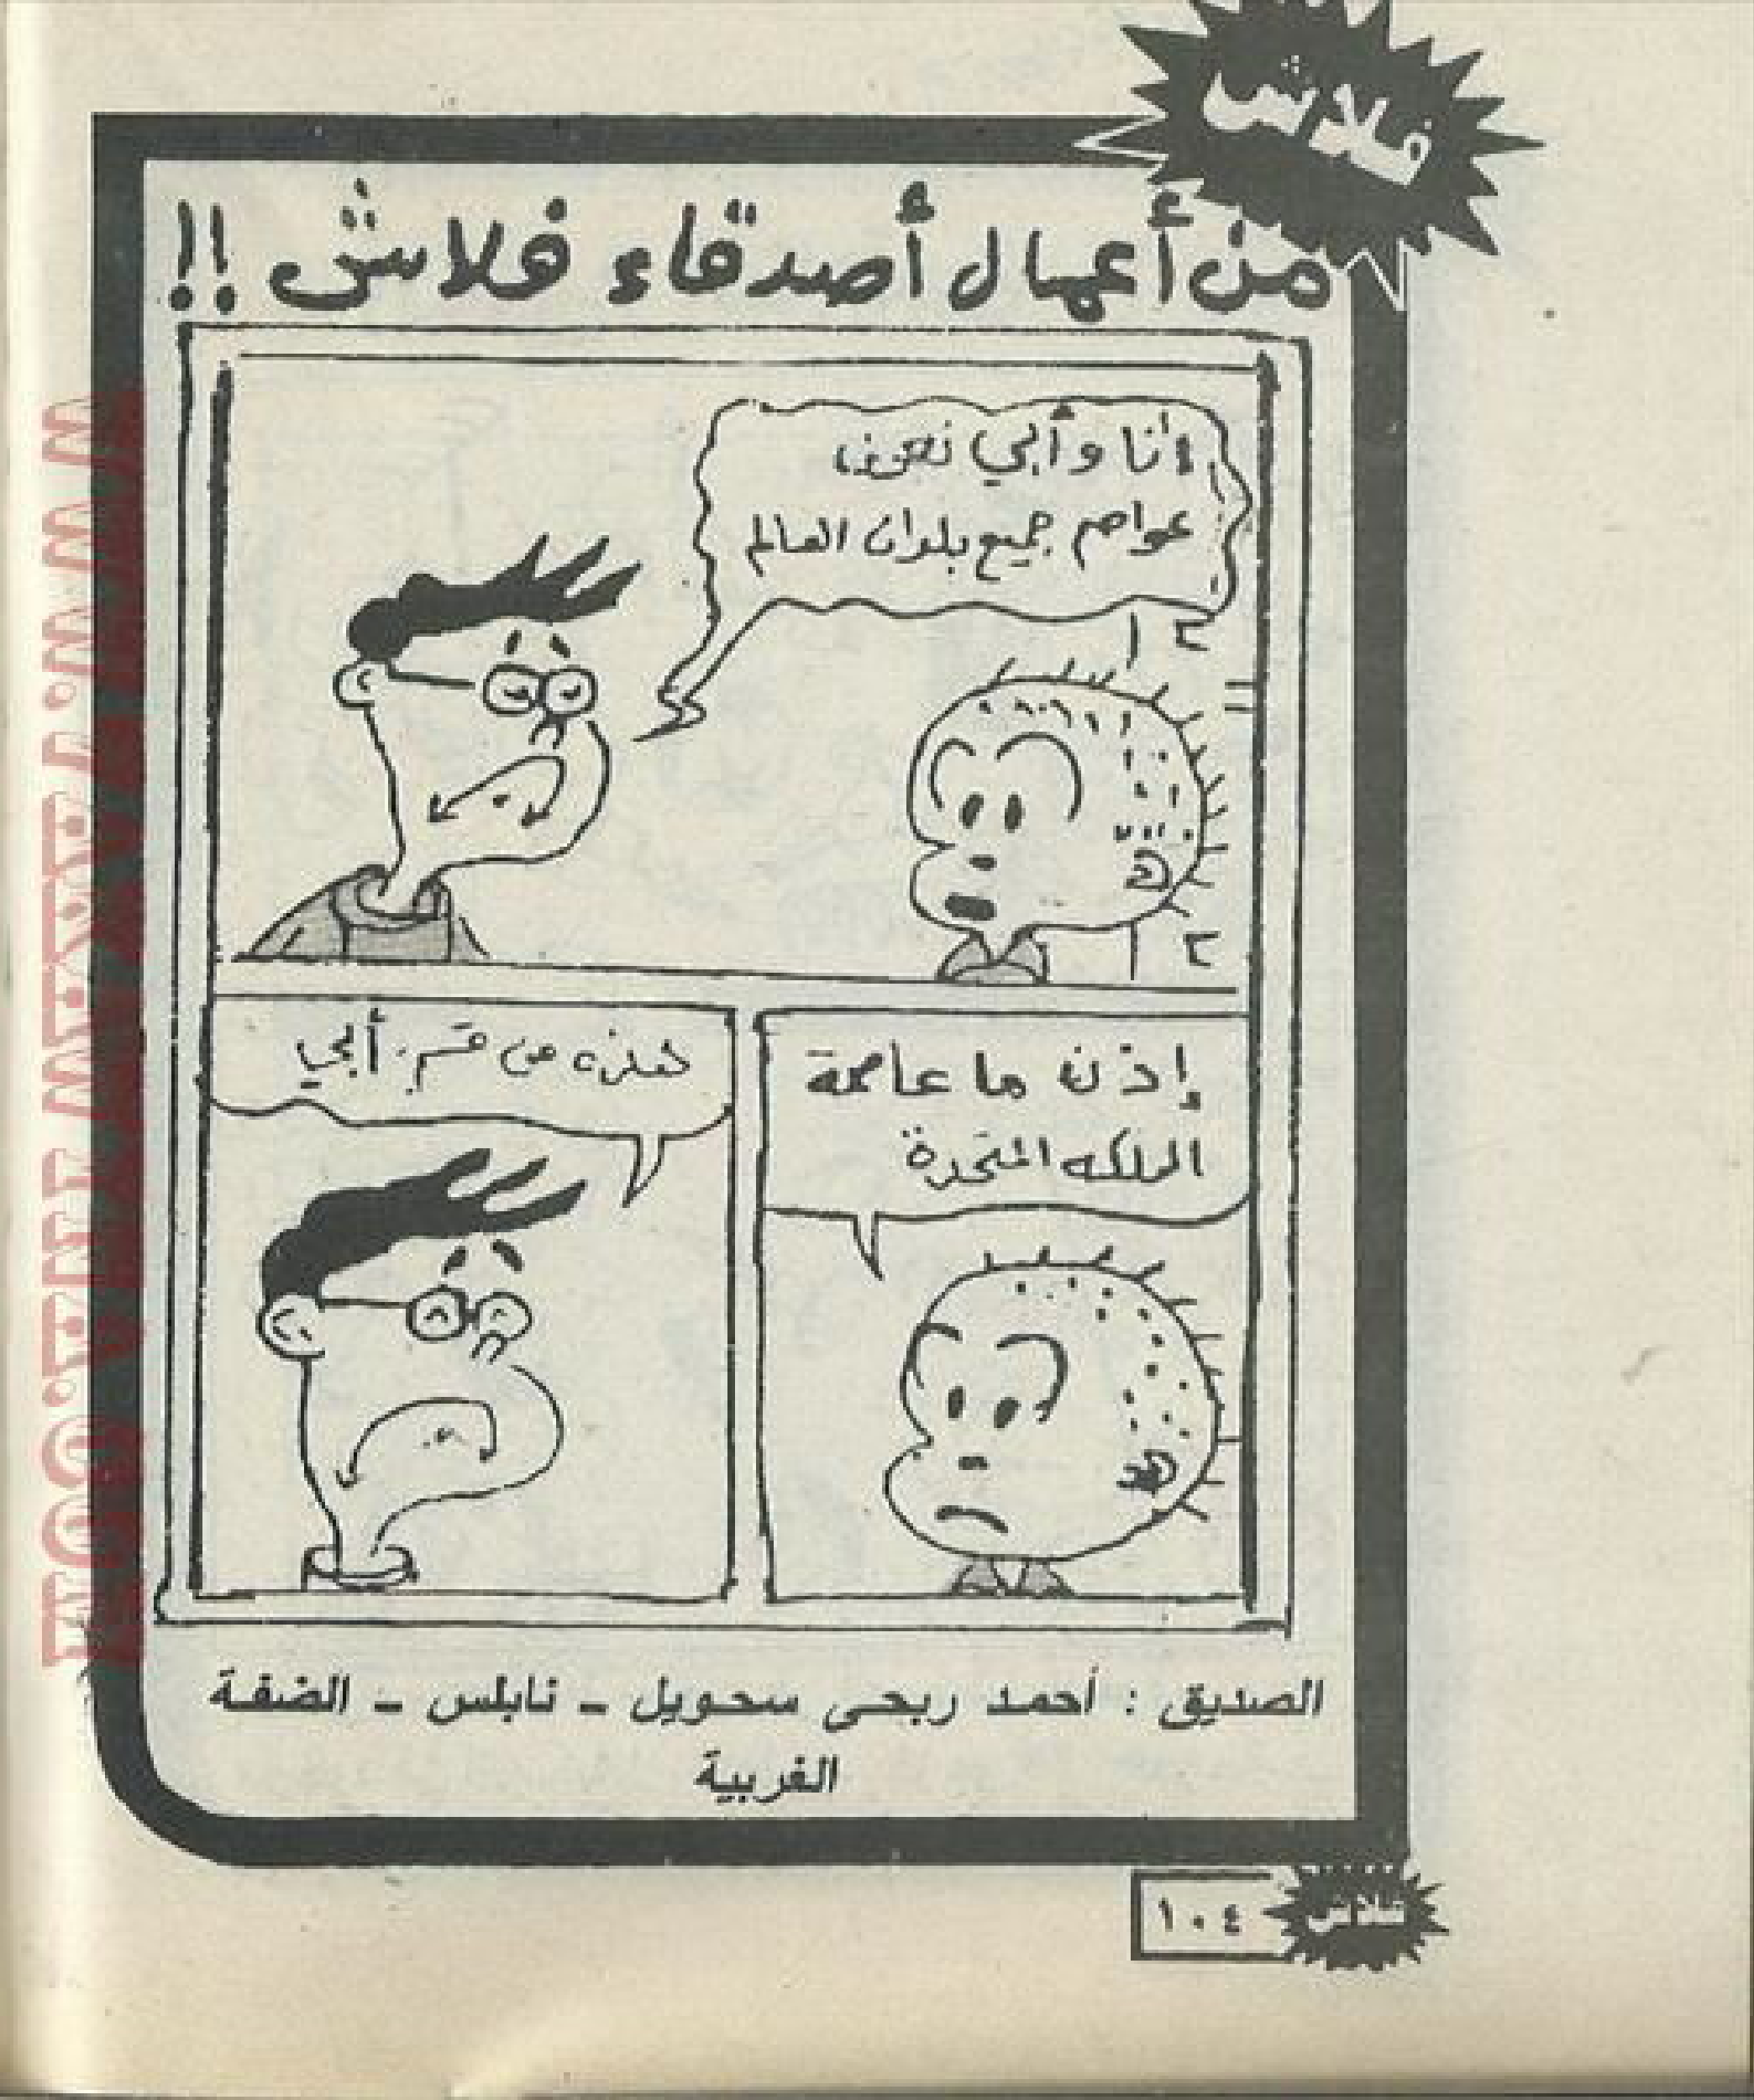 فلاش
من أعمال أصدقاء فلاش !!
أنا وأبي نعرف
عواصم جميع بلدان العالم
إذن ما عاصمة
المملكه المتحدة
هذه من قسم أبي
الصديق : أحمد ربحى سحويل - نابلس - الضفة
الغربية
١٠٤
فلاش